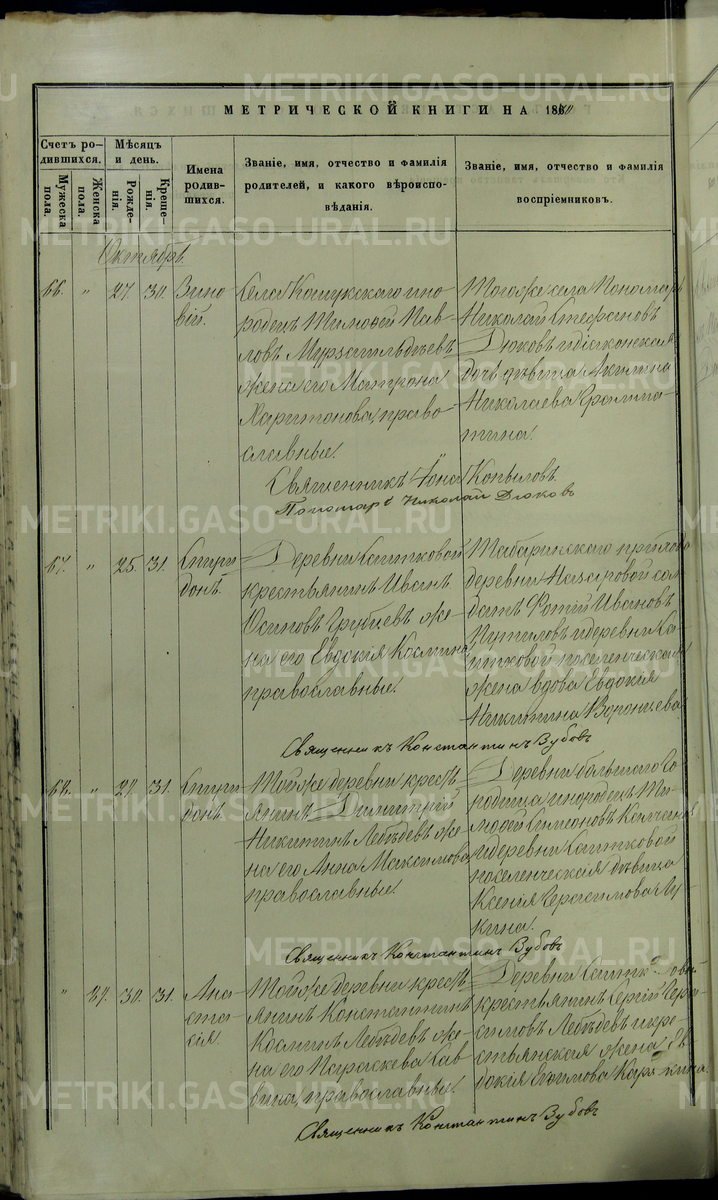 METRIKI.GASO-URAL.RU
МЕТРИЧЕСКОЙ КНИГИ НА 186
Счетъ ро-
дившихся.
Мужеска
пола.
Женска
пола.
Мѣсяцъ
и день.
Рожде-
нія.
Креще-
нія.
Имена
родив-
шихся.
Званіе, имя, отчество и фамилія
родителей, и какого вѣроиспо-
вѣданія.
Званіе, имя, отчество и фамилія
воспріемниковъ.
Октябрь
66. " 27. 30.
Зино
вій.
Села Кошукскаго ино
родецъ Тимофей Пав
ловъ Мурзагильдѣевъ
жена его Матрона
Харитонова, право-
славные.
Тогоже села Пономарь
Николай Стефановъ
Дюковъ и діаконская
дочь дѣвица Акилина
Николаева Граммa
тина.
Священникъ Іона Копыловъ.
Пономарь Николай Дюковъ
67. " 25. 31.
Спири
донъ.
Деревни Саитковой
крестьянинъ Иванъ
Осиповъ Грубцевъ же
на его Евдокія Космина
православные.
Табаринскаго прихода
деревни Назаровой сол
датъ Фотій Ивановъ
Путиловъ и деревни Са
итковой поселенческая
жена вдова Евдокія
Никитина Воронцева
Священникъ Константинъ Зубовъ
68. " 27. 31.
Спири
донъ.
Тойже деревни кресть
янинъ Димитрій
Никитинъ Лебѣдевъ же
на его Анна Максимова
православные.
Деревни большаго Го
родища инородецъ Ти
мофей Симеоновъ
и деревни Саитковой
поселенческая дѣвица
Ксенія Герасимова Лу
кина.
Священникъ Константинъ Зубовъ
" 30. 31.
Ана
ста
сія.
Тойже деревни кресть
янинъ Константинъ
Косминъ Лебѣдевъ же
на его Параскева Сав
вина, православные.
Деревни Саитковой
крестьянинъ Сергій Гера
симовъ Лебѣдевъ и кре
стьянская жена Ев
докія Ефимова
Священникъ Константинъ Зубовъ
METRIKI.GASO-URAL.RU
METRIKI.GASO-URAL.RU
METRIKI.GASO-URAL.RU
METRIKI.GASO-URAL.RU
METRIKI.GASO-URAL.RU
METRIKI.GASO-URAL.RU
METRIKI.GASO-URAL.RU